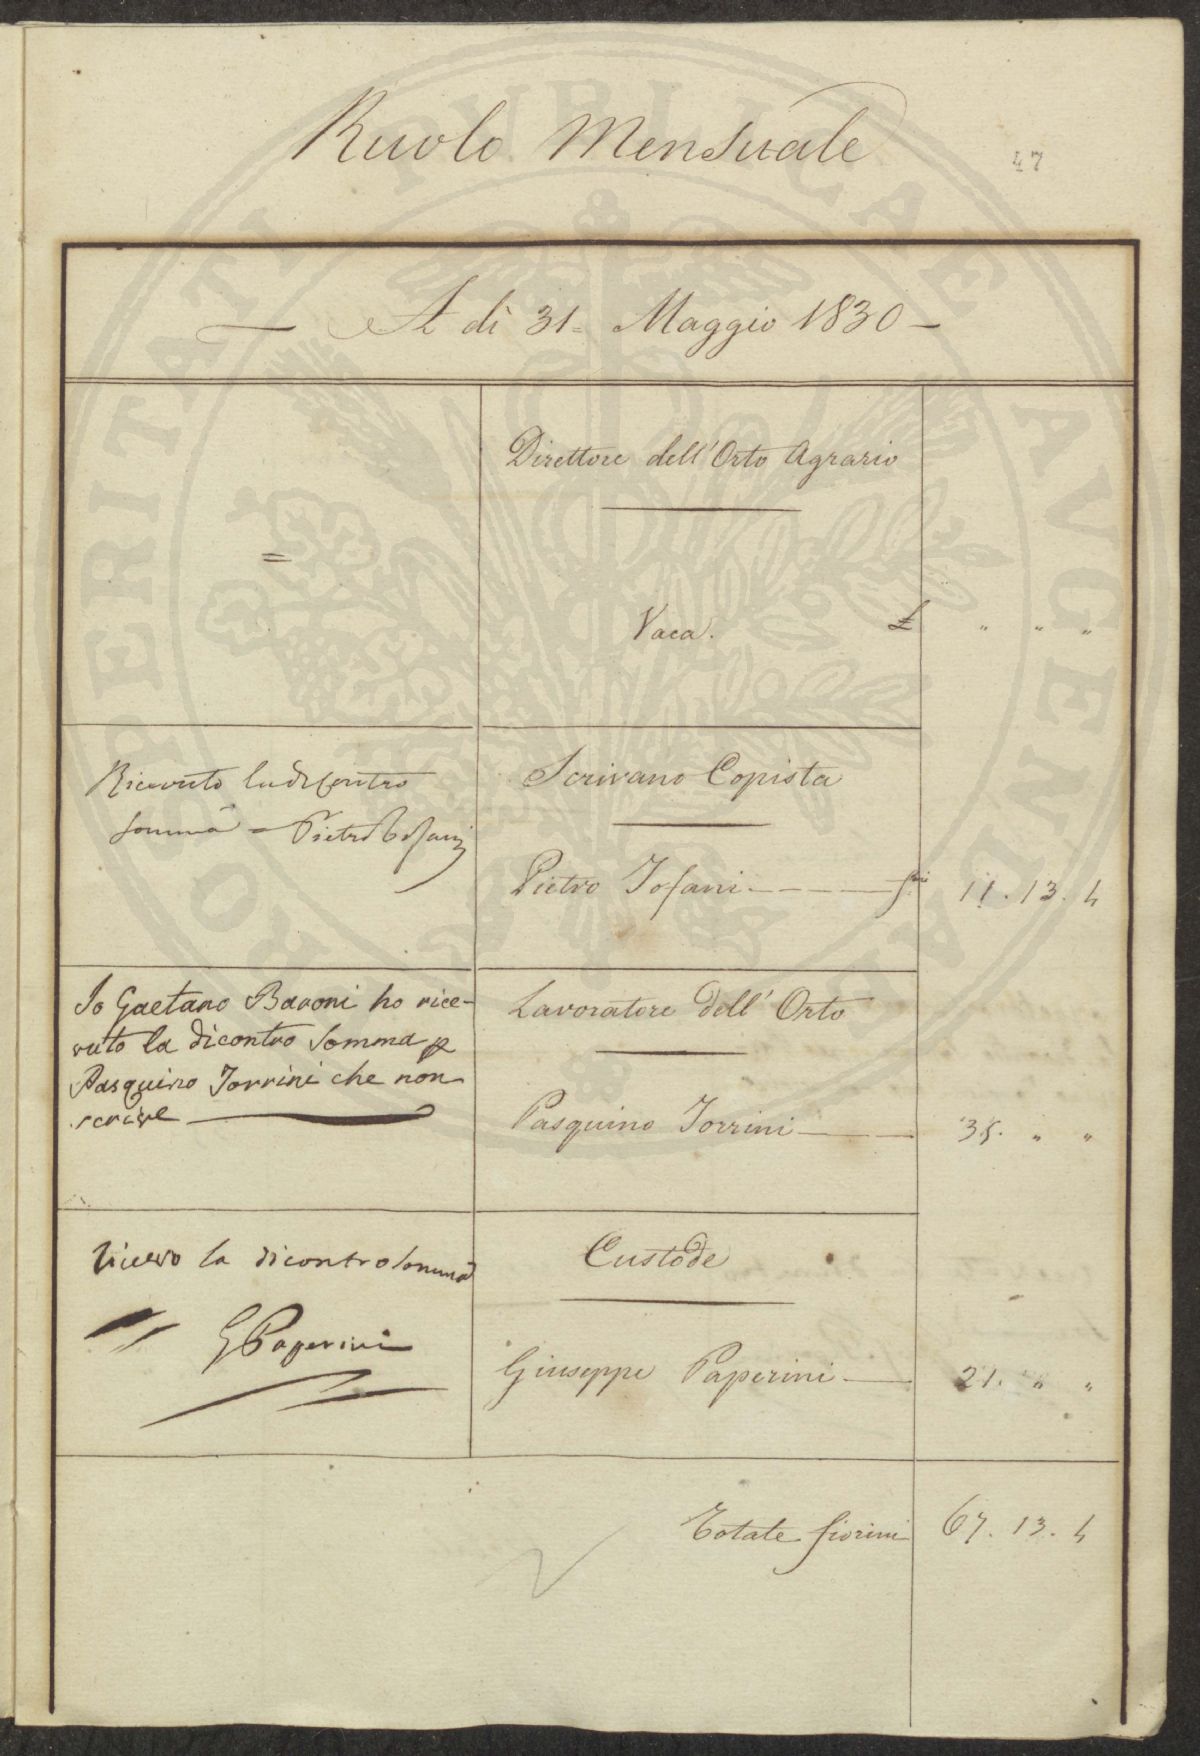 Ruolo Mensuale
47
A dì 31= Maggio 1830
Direttore dell'Orto Agrario
=
Vaca. £ " " "
Ricevuto la di contro
somma = Pietro Tofani
Scrivano Copista
Pietro Tofani fni 11. 13. 4
Io Gaetano Baroni ho rice-
vuto la dicontro Somma p
Pasquino Torrini che non
scrive
Lavoratore dell' Orto
Pasquino Torrini 35. " "
Ricevo la dicontro somma
G Paperini
Custode
Giuseppe Paperini 21. " "
Totale fiorini 67. 13. 4
PROSPERITATI PVBLICAE AVGENDAE